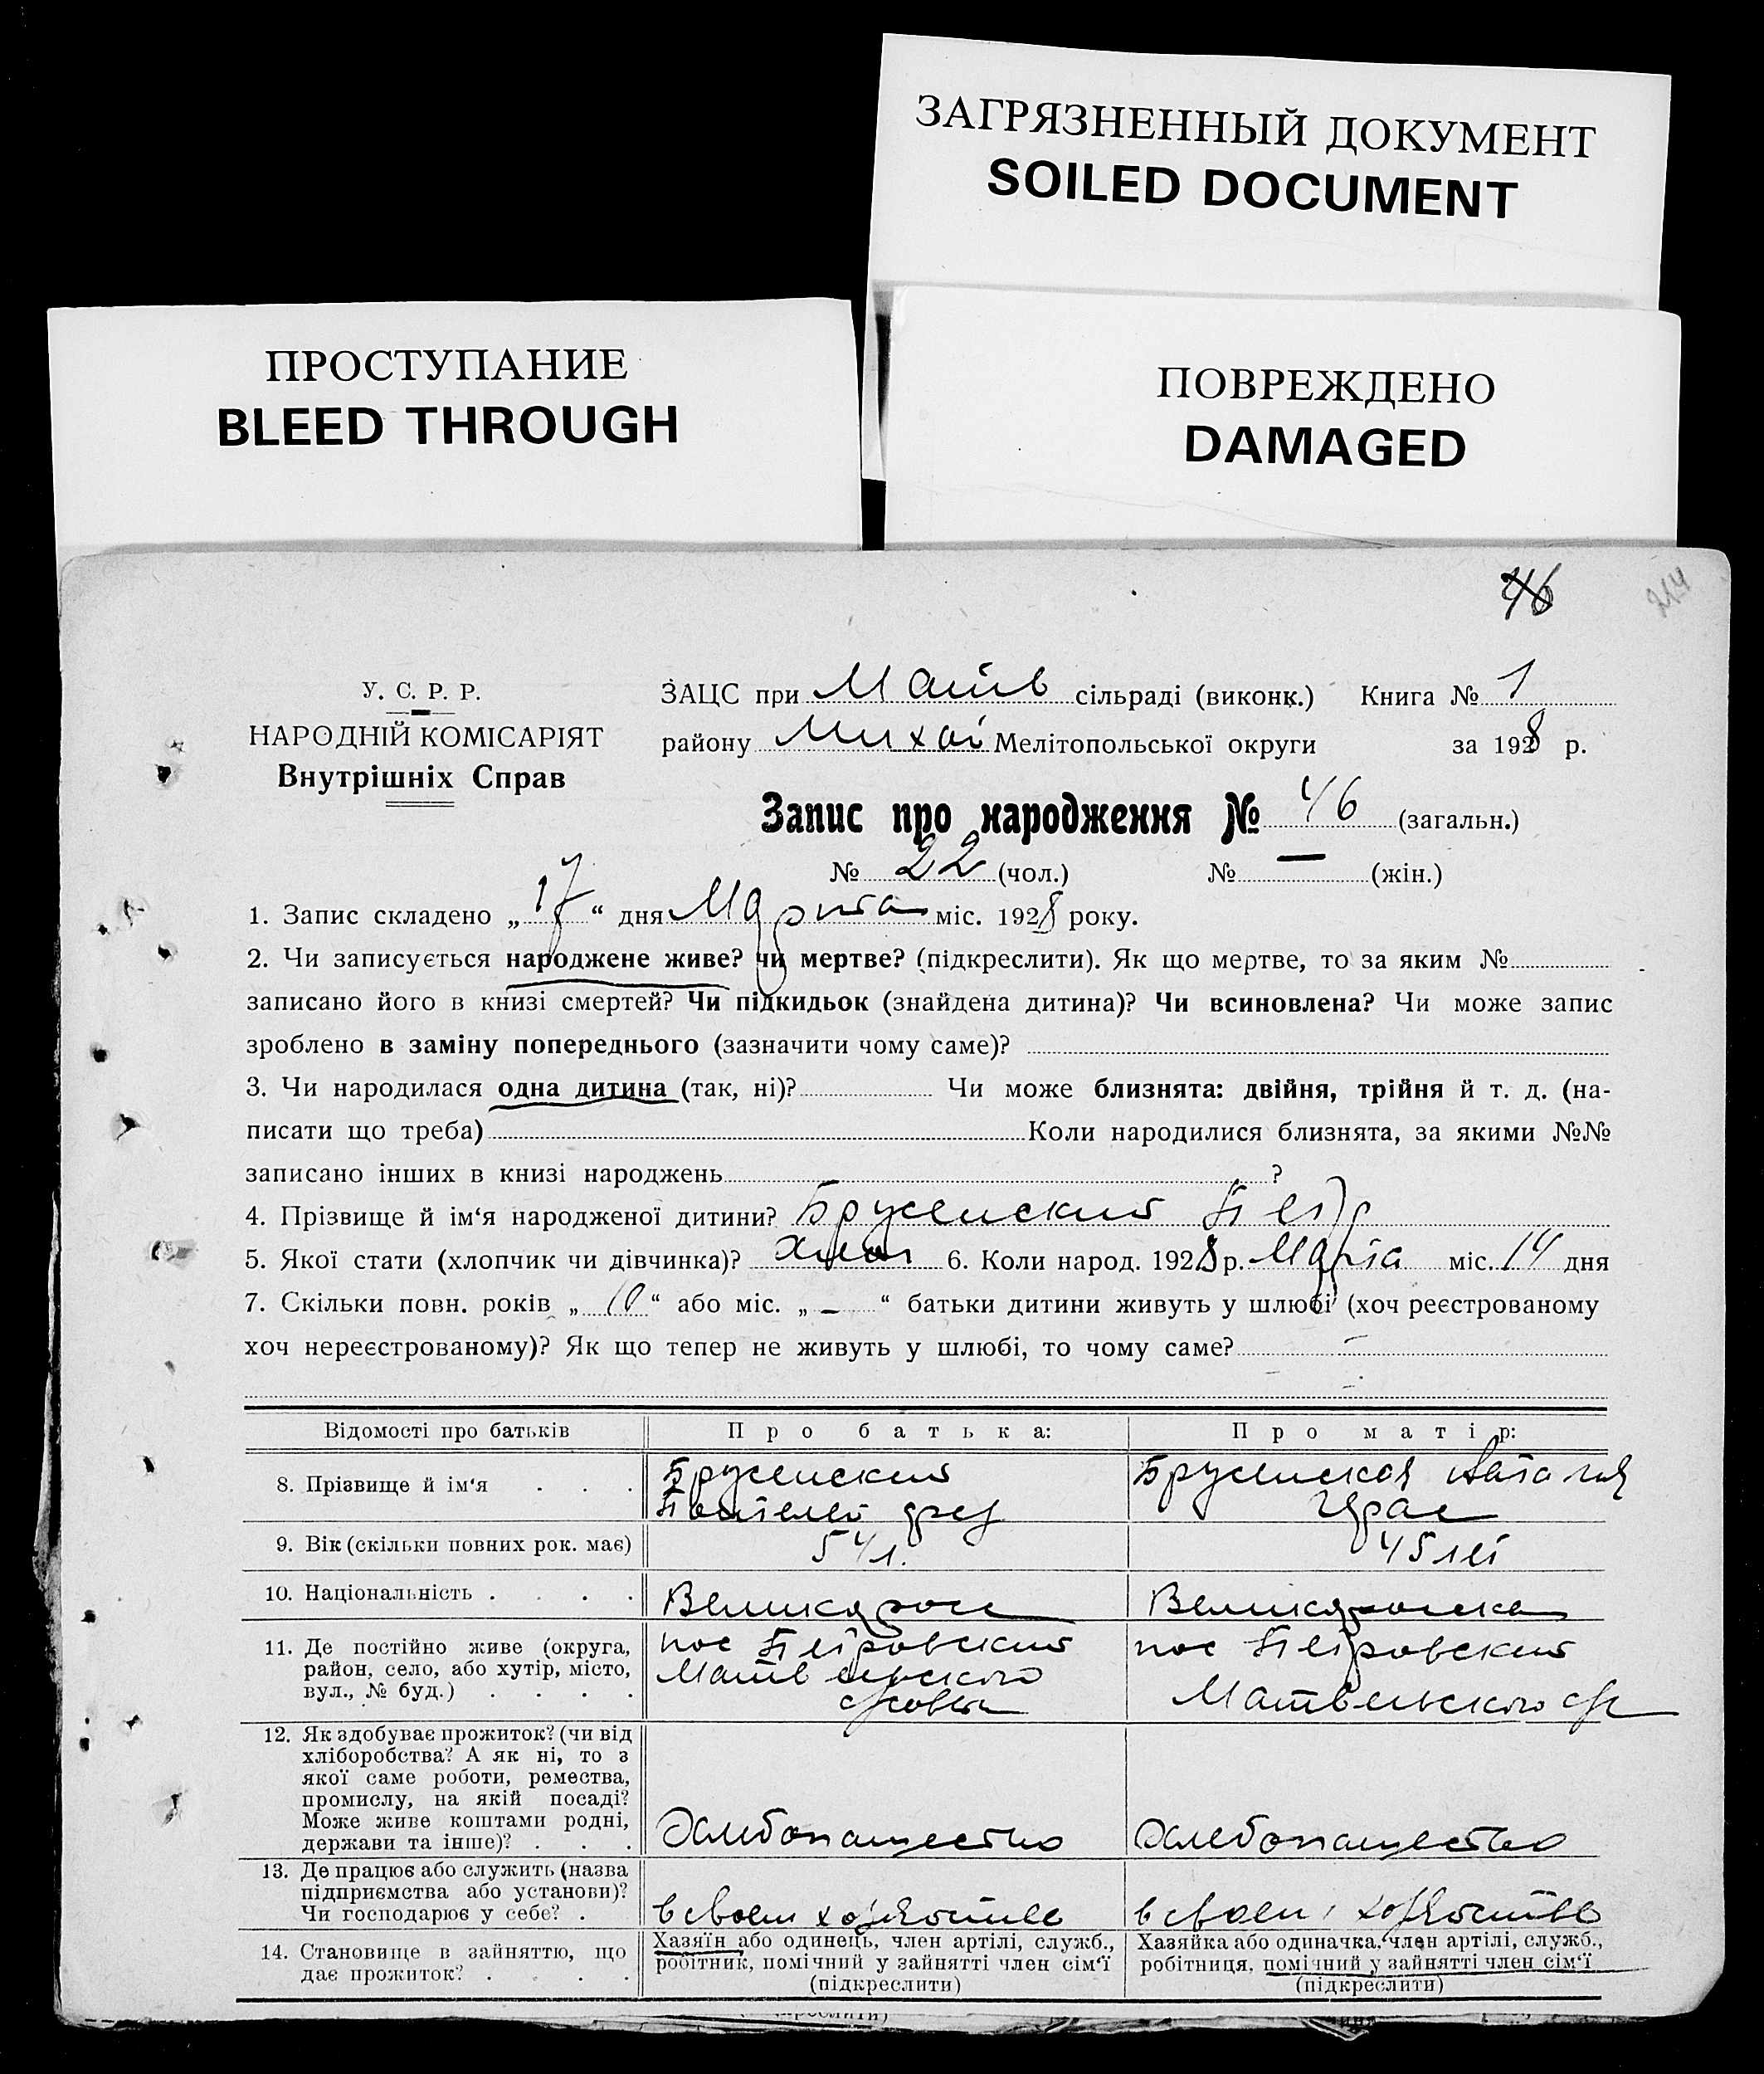 ЗАГРЯЗНЕННЫЙ ДОКУМЕНТ
SOILED DOCUMENT
ПРОСТУПАНИЕ
BLEED THROUGH
ПОВРЕЖДЕНО
DAMAGED
46
У. С. Р. Р.
НАРОДНІЙ КОМІСАРІЯТ
Внутрішніх Справ
ЗАЦС при Матв сільраді (виконк.) Книга № 1
району Михай Мелітопольської округи за 1928 р.
Запис про народження № 46 (загальн.)
№ 22 (чол.) № — (жін.)
1. Запис складено „17“ дня Марта міс. 1928 року.
2. Чи записується народжене живе? чи мертве? (підкреслити). Як що мертве, то за яким №
записано його в книзі смертей? Чи підкидьок (знайдена дитина)? Чи всиновлена? Чи може запис
зроблено в заміну попереднього (зазначити чому саме)?
3. Чи народилася одна дитина (так, ні)? Чи може близнята: двійня, трійня й т. д. (на-
писати що треба) Коли народилися близнята, за якими №№
записано інших в книзі народжень ?
4. Прізвище й ім‘я народженої дитини? Брусенский Петр
5. Якої стати (хлопчик чи дівчинка)? 6. Коли народ. 1928 р. Марта міс. 14 дня
7. Скільки повн. років „10“ або міс. „–“ батьки дитини живуть у шлюбі (хоч реєстрованому
хоч нереєстрованому)? Як що тепер не живуть у шлюбі, то чому саме? –
Відомості про батьків Про батька: Про матір:
8. Прізвище й ім‘я . . . Брусенский Пантелей Брусенская Наталия
9. Вік (скільки повних рок. має) 54 л. 45 лет
10. Національність . . . . Великаросс Великаросска
11. Де постійно живе (округа,
район, село, або хутір, місто,
вул., № буд.) . . . .
пос Петровский
Матвеевского
с/совета
пос Петровский
Матвеевского с/с
12. Як здобуває прожиток? (чи від
хліборобства? А як ні, то з
якої саме роботи, ремества,
промислу, на якій посаді?
Може живе коштами родні,
держави та інше)? . . .
Хлебопашество Хлебопашество
13. Де працює або служить (назва
підприємства або установи)?
Чи господарює у себе? .
в своем хозяйстве в своем хозяйстве
14. Становище в зайняттю, що
дає прожиток? . . . .
Хазяїн або одинець, член артілі, служб.,
робітник, помічний у зайнятті член сім‘ї
(підкреслити)
Хазяйка або одиначка, член артілі, служб.,
робітниця, помічний у зайнятті член сім‘ї
(підкреслити)